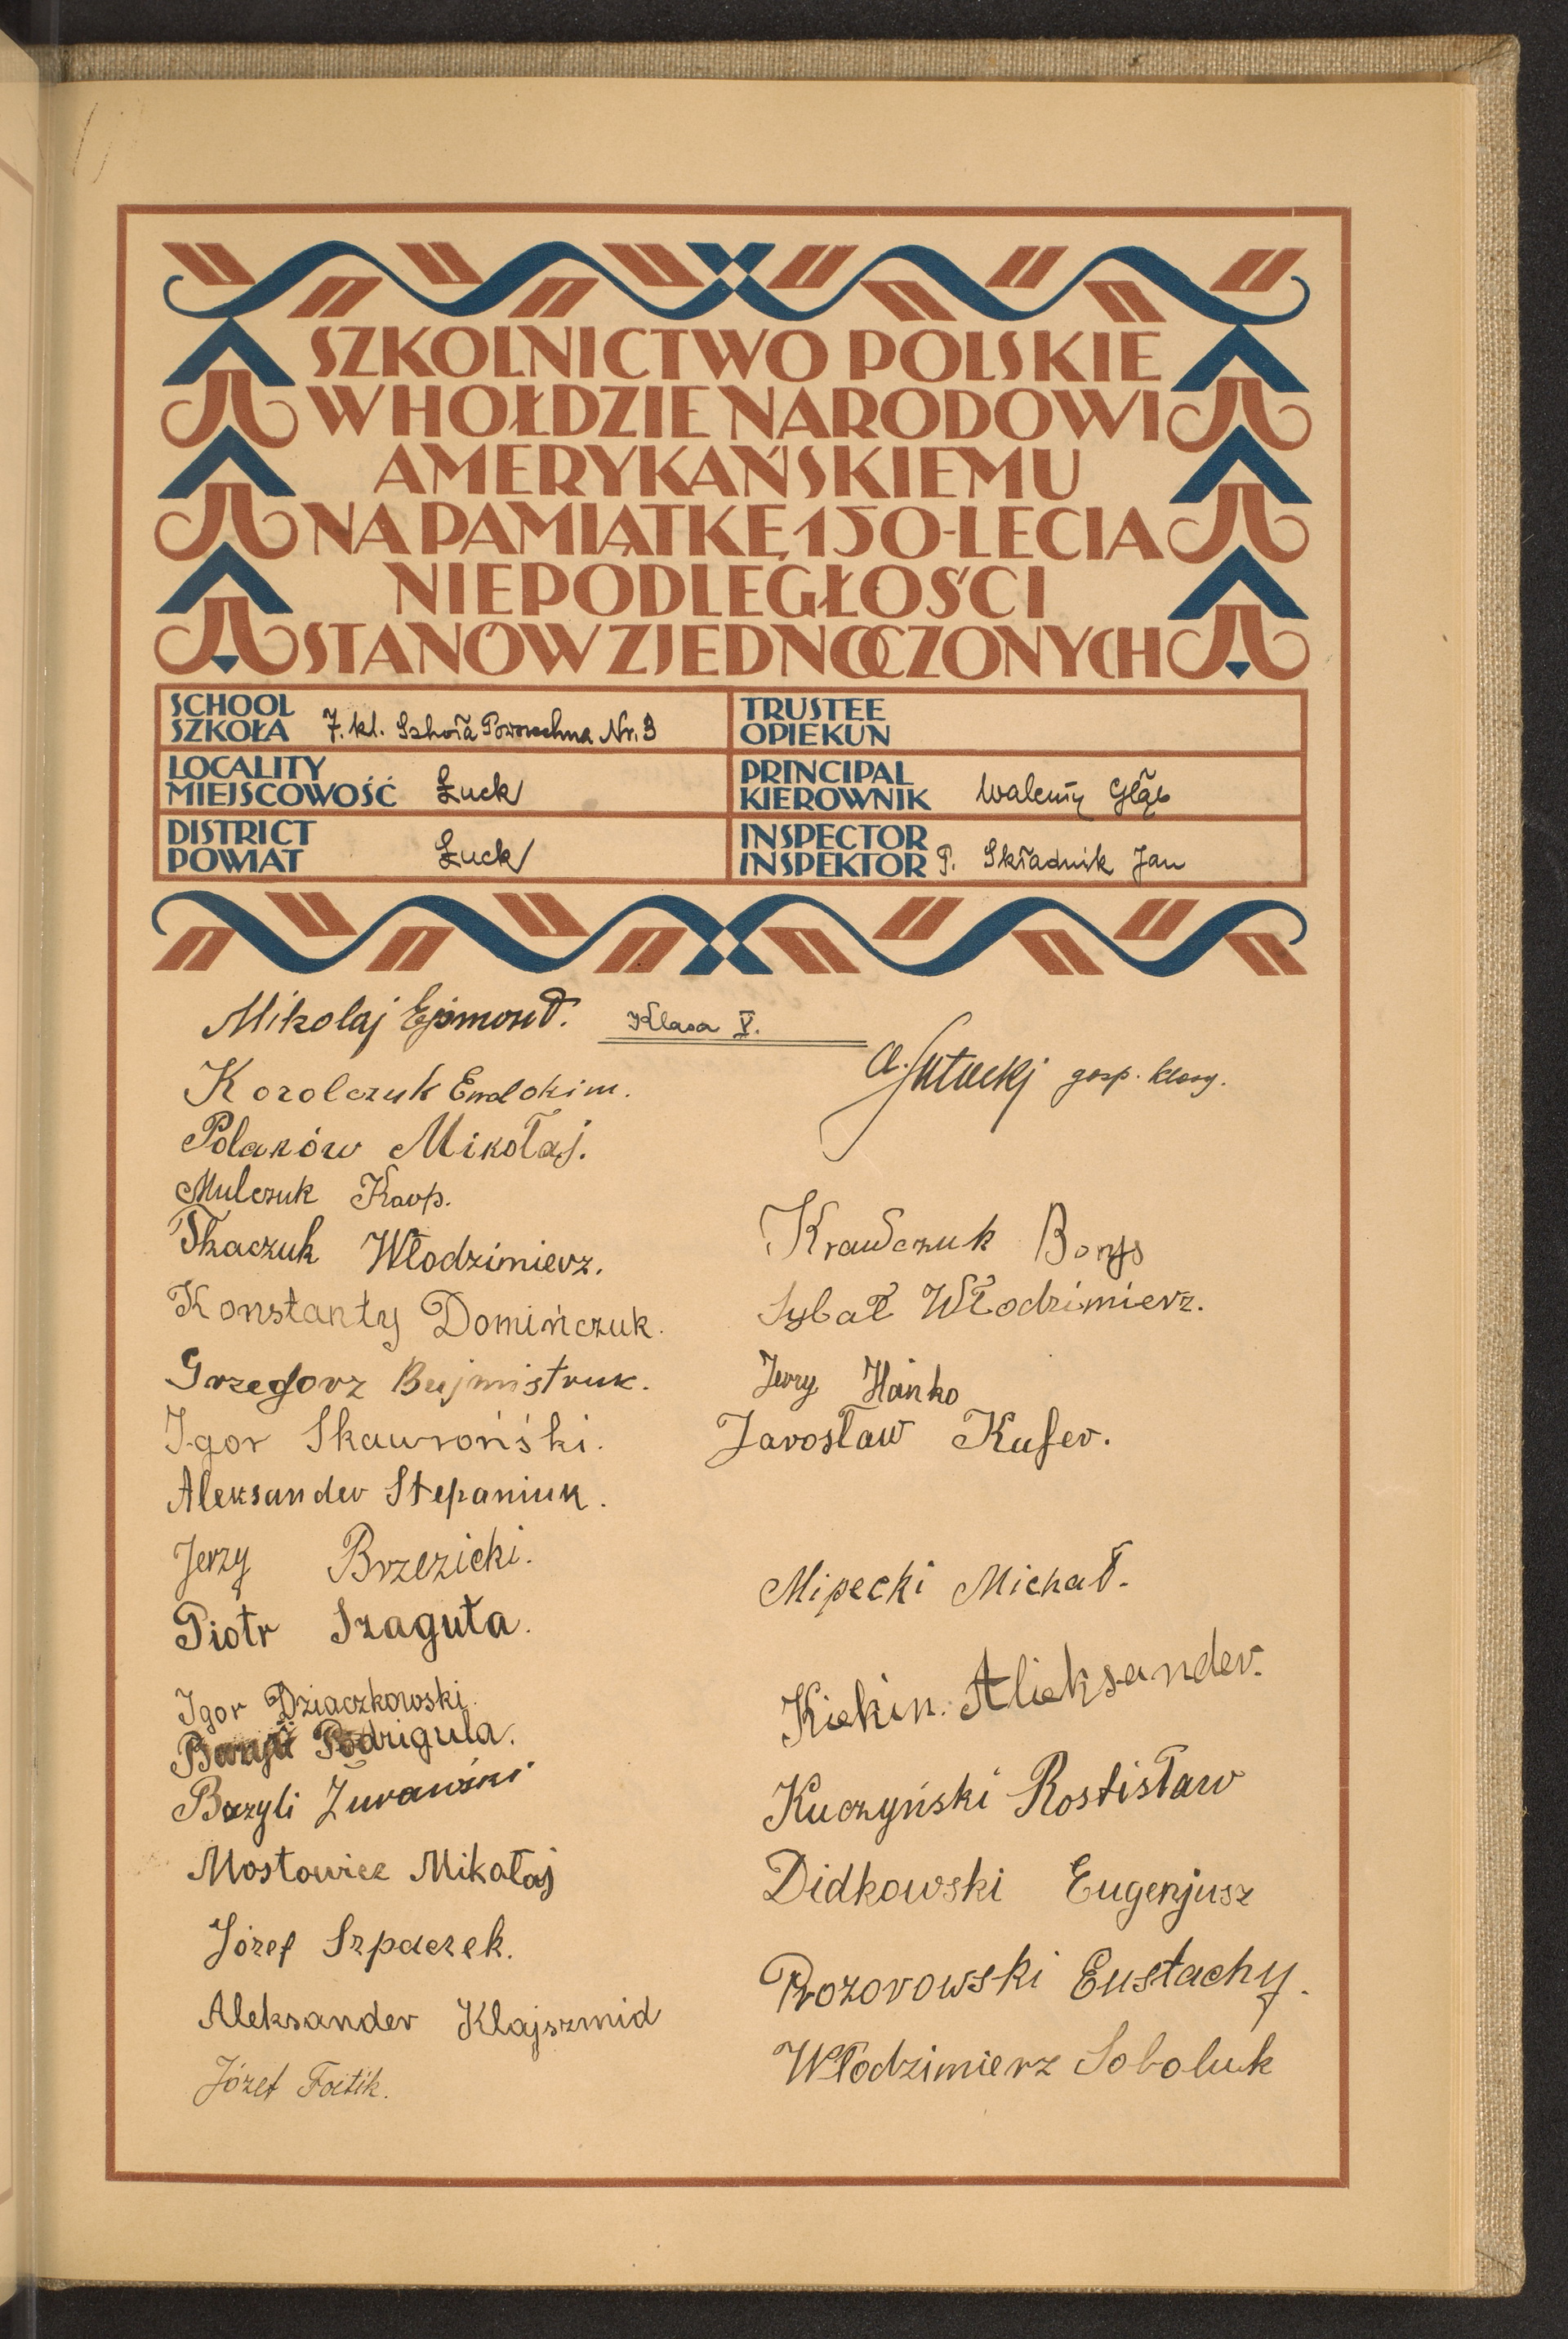 SZKOLNICTWO POLSKIE
W HOŁDZIE NARODOWI
AMERYKAŃSKIEMU
NA PAMIĄTKĘ 150-LECIA
NIEPODLEGŁOŚCI
STANÓW ZJEDNOCZONYCH
SCHOOL
SZKOŁA 7. kl. Szkoła Powszechna Nr. 3
TRUSTEE
OPIEKUN
LOCALITY
MIEJSCOWOŚĆ Łuck
PRINCIPAL
KIEROWNIK Walenty Głąb
DISTRICT
POWIAT Łuck
INSPECTOR
INSPEKTOR P. Składnik Jan
Klasa V.
Mikolaj Ejsmont.
Korolczuk Ewdokim.
Polaków Mikołaj.
Mulczuk Karp.
Tkaczuk Włodzimierz.
Konstanty Domińczuk.
Grzegorz Bujmistruk.
Igor Skawroński.
Aleksander Stepaniuk.
Jerzy Brzezicki.
Piotr Szaguta.
Igor Dziaczkowski.
Podrigula.
Bazyli Żurawski
Mostowicz Mikołaj
Józef Szpaczek.
Aleksander Klajszmid
Józef Foitik.
gosp. klasy.
Krawczuk Borys
Sybał Włodzimierz.
Jerzy Hańko
Jarosław Kufer.
Mipecki Michał.
Kiekin. Alieksander.
Kuczyński Rostisław
Didkowski Eugenjusz
Prozorowski Eustachy.
Włodzimierz Soboluk